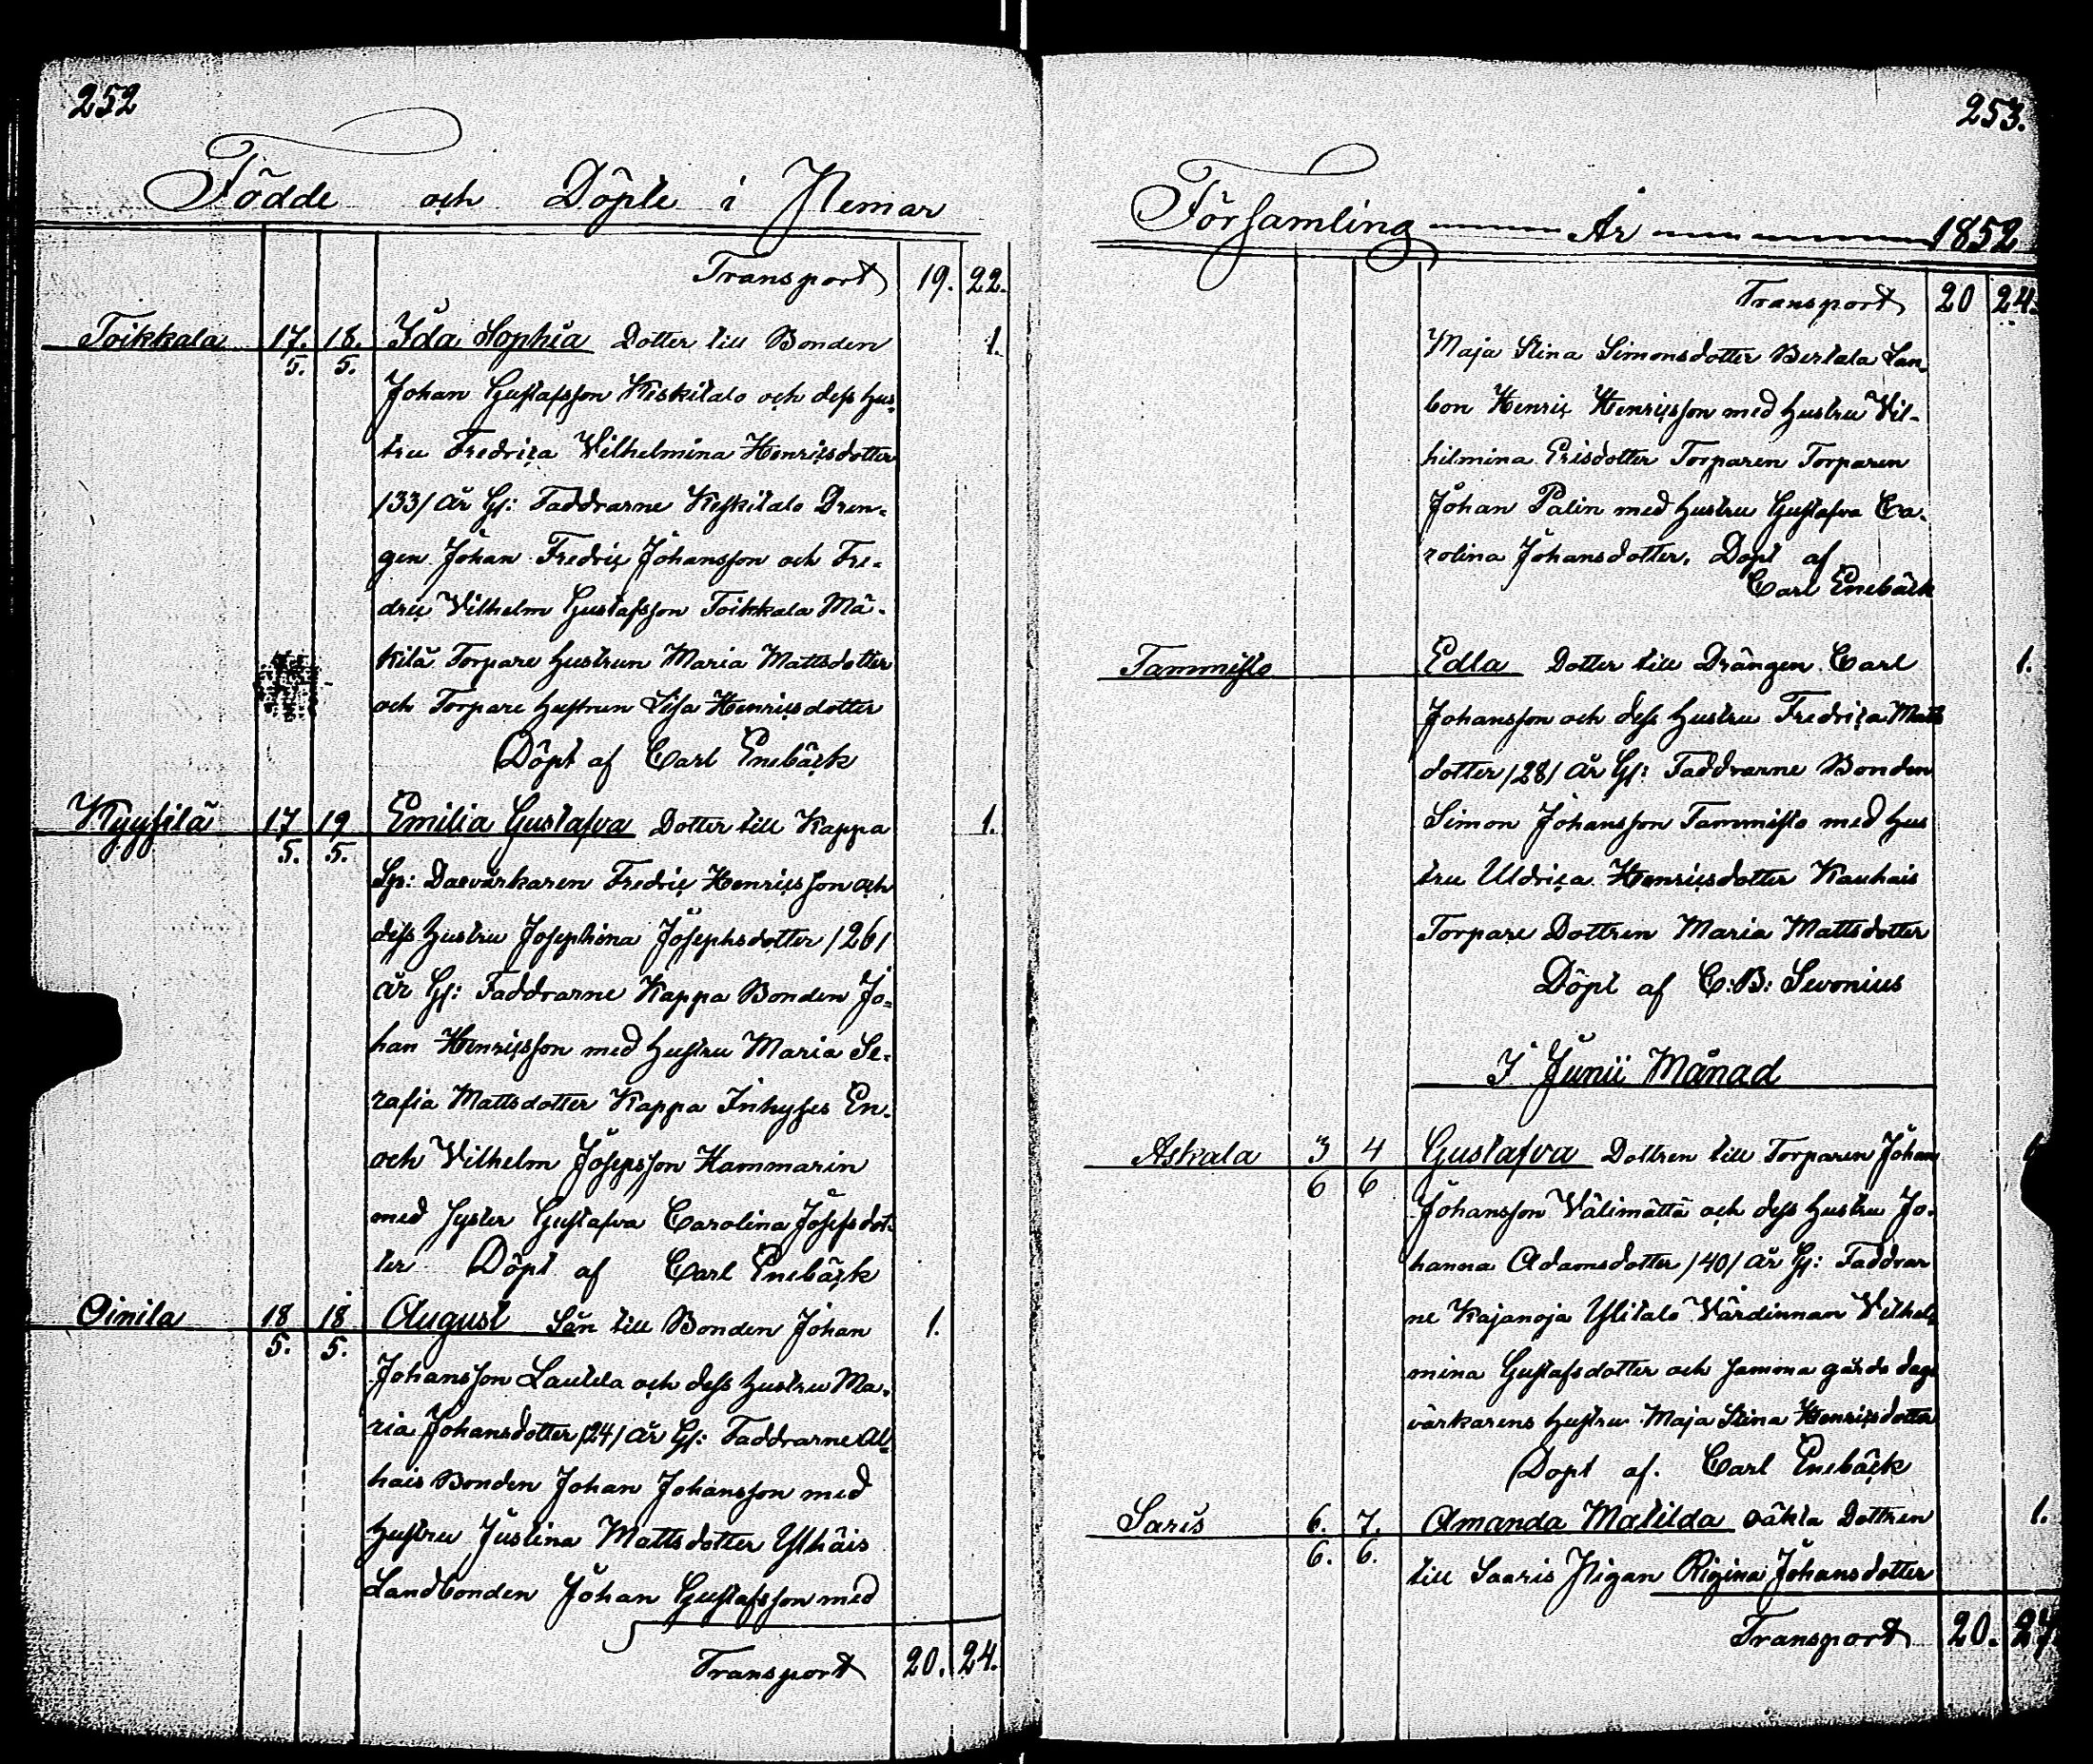 252
Födde och Döpte i Nemar
Transport 19. 22.
Toikkala 17. 18. Ida Sophia Dotter till Bonden 1.
5. 5.
Johan Gustafsson Keskitalo och dess hus-
tru Fredrica Vilhelmina Henricsdotter
/33/ år Gl: Faddrarne Keskitalo Dren-
gen Johan Fredric Johansson och Fre-
dric Vilhelm Gustafsson Toikkala Mä-
kilä Torpare hustrun Maria Mattsdotter
och Torpare hustrun Lisa Henricsdotter
Döpt af Carl Enebäck
Kyysilä 17 19 Emilia Gustafva Dotter till Kappa 1.
5. 5.
Sp: Dagvärkaren Fredric Henricsson och
dess hustru Josephina Josephsdotter /26/
år Gl: Faddrarne Kappa Bonden Jo-
han Henricsson med hustru Maria Se-
rafia Mattsdotter Kappa Inhyses En-
och Vilhelm Josepsson Hammarin
med syster Gustafva Carolina Josefsdot-
ter Döpt af Carl Enebäck
Oinila 18 18 August Sån till Bonden Johan 1.
5. 5.
Johansson Lautila och dess hustru Ma-
ria Johansdotter /24/ år Gl: Faddrarne Al-
hais Bonden Johan Johansson med
hustru Justina Mattsdotter Ylhäis
Landbonden Johan Gustafsson med
Transport 20. 24.
253.
Församling År 1852
Transport 20 24.
Maja Stina Simonsdotter Bertala Lan-
bon Henric Henricsson med hustru Vil-
hilmina Erisdotter Torparen Torparen
Johan Palin med hustru Gustafva Ca-
rolina Johansdotter. Döpt af
Carl Enebäck
Tammisto Edla Dotter till Drängen Carl 1.
Johansson och dess hustru Fredrica Matts
dotter /28/ år Gl: Faddrarne Bonden
Simon Johansson Tammisto med hus
tru Uldrica Henricsdotter Kauhais
Torpare Dottren Maria Mattsdotter
Döpt af C:B: Sevonius
I Junii Månad
Askala 3 4 Gustafva Dottren till Torparen Johan
6 6
Johansson Välimättä och dess hustru Jo-
hanna Adamsdotter /40/ år Gl: Faddrar
ne Kajanoja Ylitalo Värdinnan Vilhel-
mina Gustafsdotter och samma gårds dag-
värkarens hustru Maja Stina Henricsdotter
Döpt af. Carl Enebäck
Saris 6. 7. Amanda Matilda oäkta Dottren 1.
6. 6.
till Saaris Pigan Rigina Johansdotter
Transport 20. 27